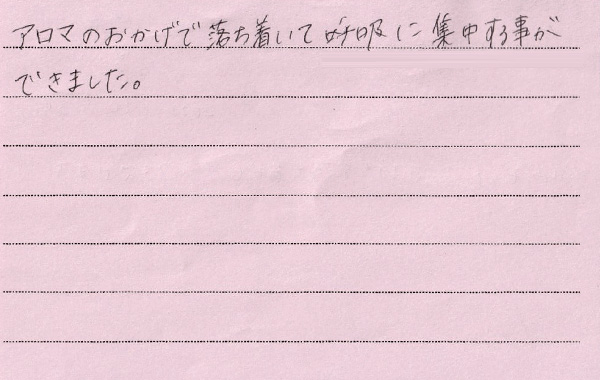 アロマのおかげで落ち着いて呼吸に集中する事が
できました。